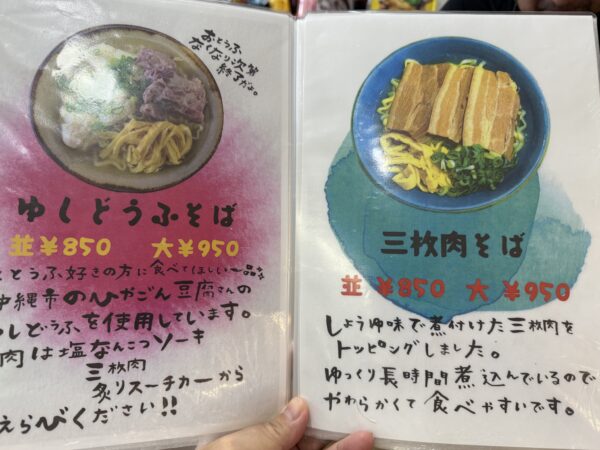 おとうふ
なくなり次第
終了だよ。
ゆしどうふそば
並 ¥850 大 ¥950
とうふ好きの方に食べてほしい一品です
沖縄市のひやごん豆腐さんの
ゆしどうふを使用しています。
肉は塩なんこつソーキ
三枚肉
炙りスーチカーから
えらびください!!
三枚肉そば
並 ¥850 大 ¥950
しょうゆ味で煮付けた三枚肉を
トッピングしました。
ゆっくり長時間煮込んでいるので
やわらかくて食べやすいです。